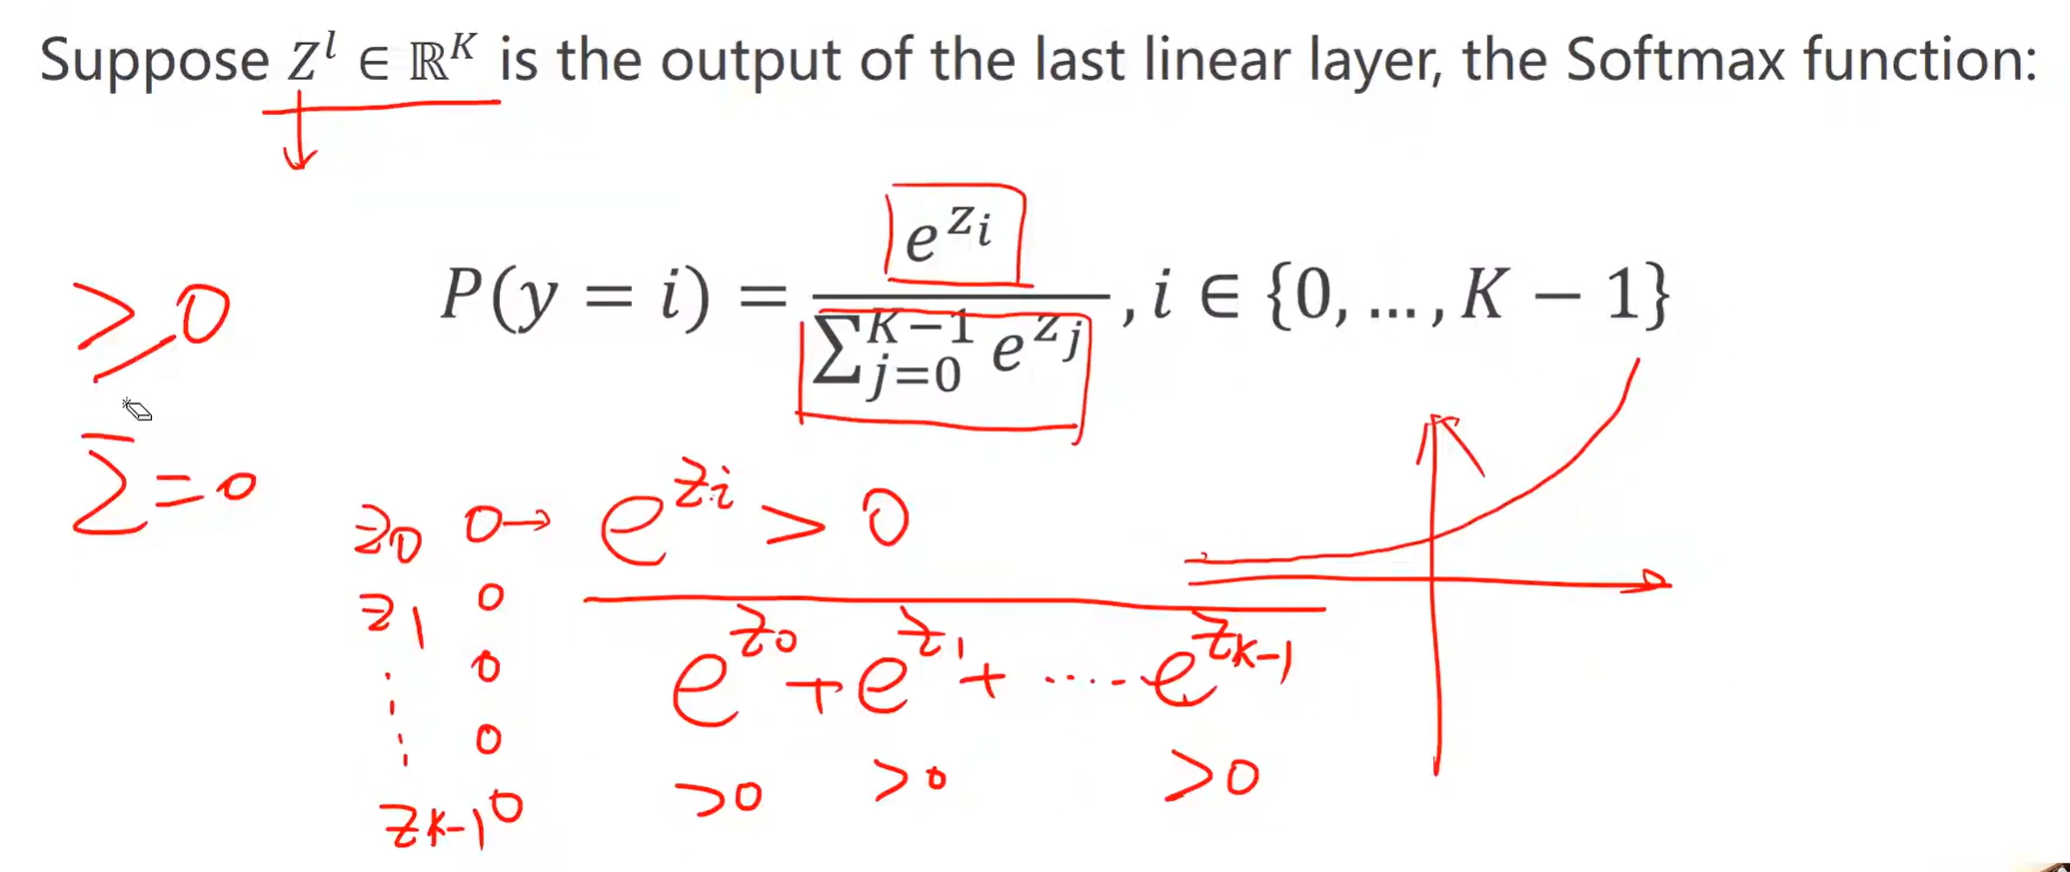 Suppose Z^l ∈ ℝ^K is the output of the last linear layer, the Softmax function:
P(y = i) = e^{Z_i} / ∑_{j=0}^{K−1} e^{Z_j} , i ∈ {0, … , K − 1}
≥0
Σ=0
z_0 0→ e^{z_i} > 0
z_1 0
e^{z_0} + e^{z_1} + ····· e^{z_{K-1}}
0
0
>0 >0 >0
z_{K-1} 0